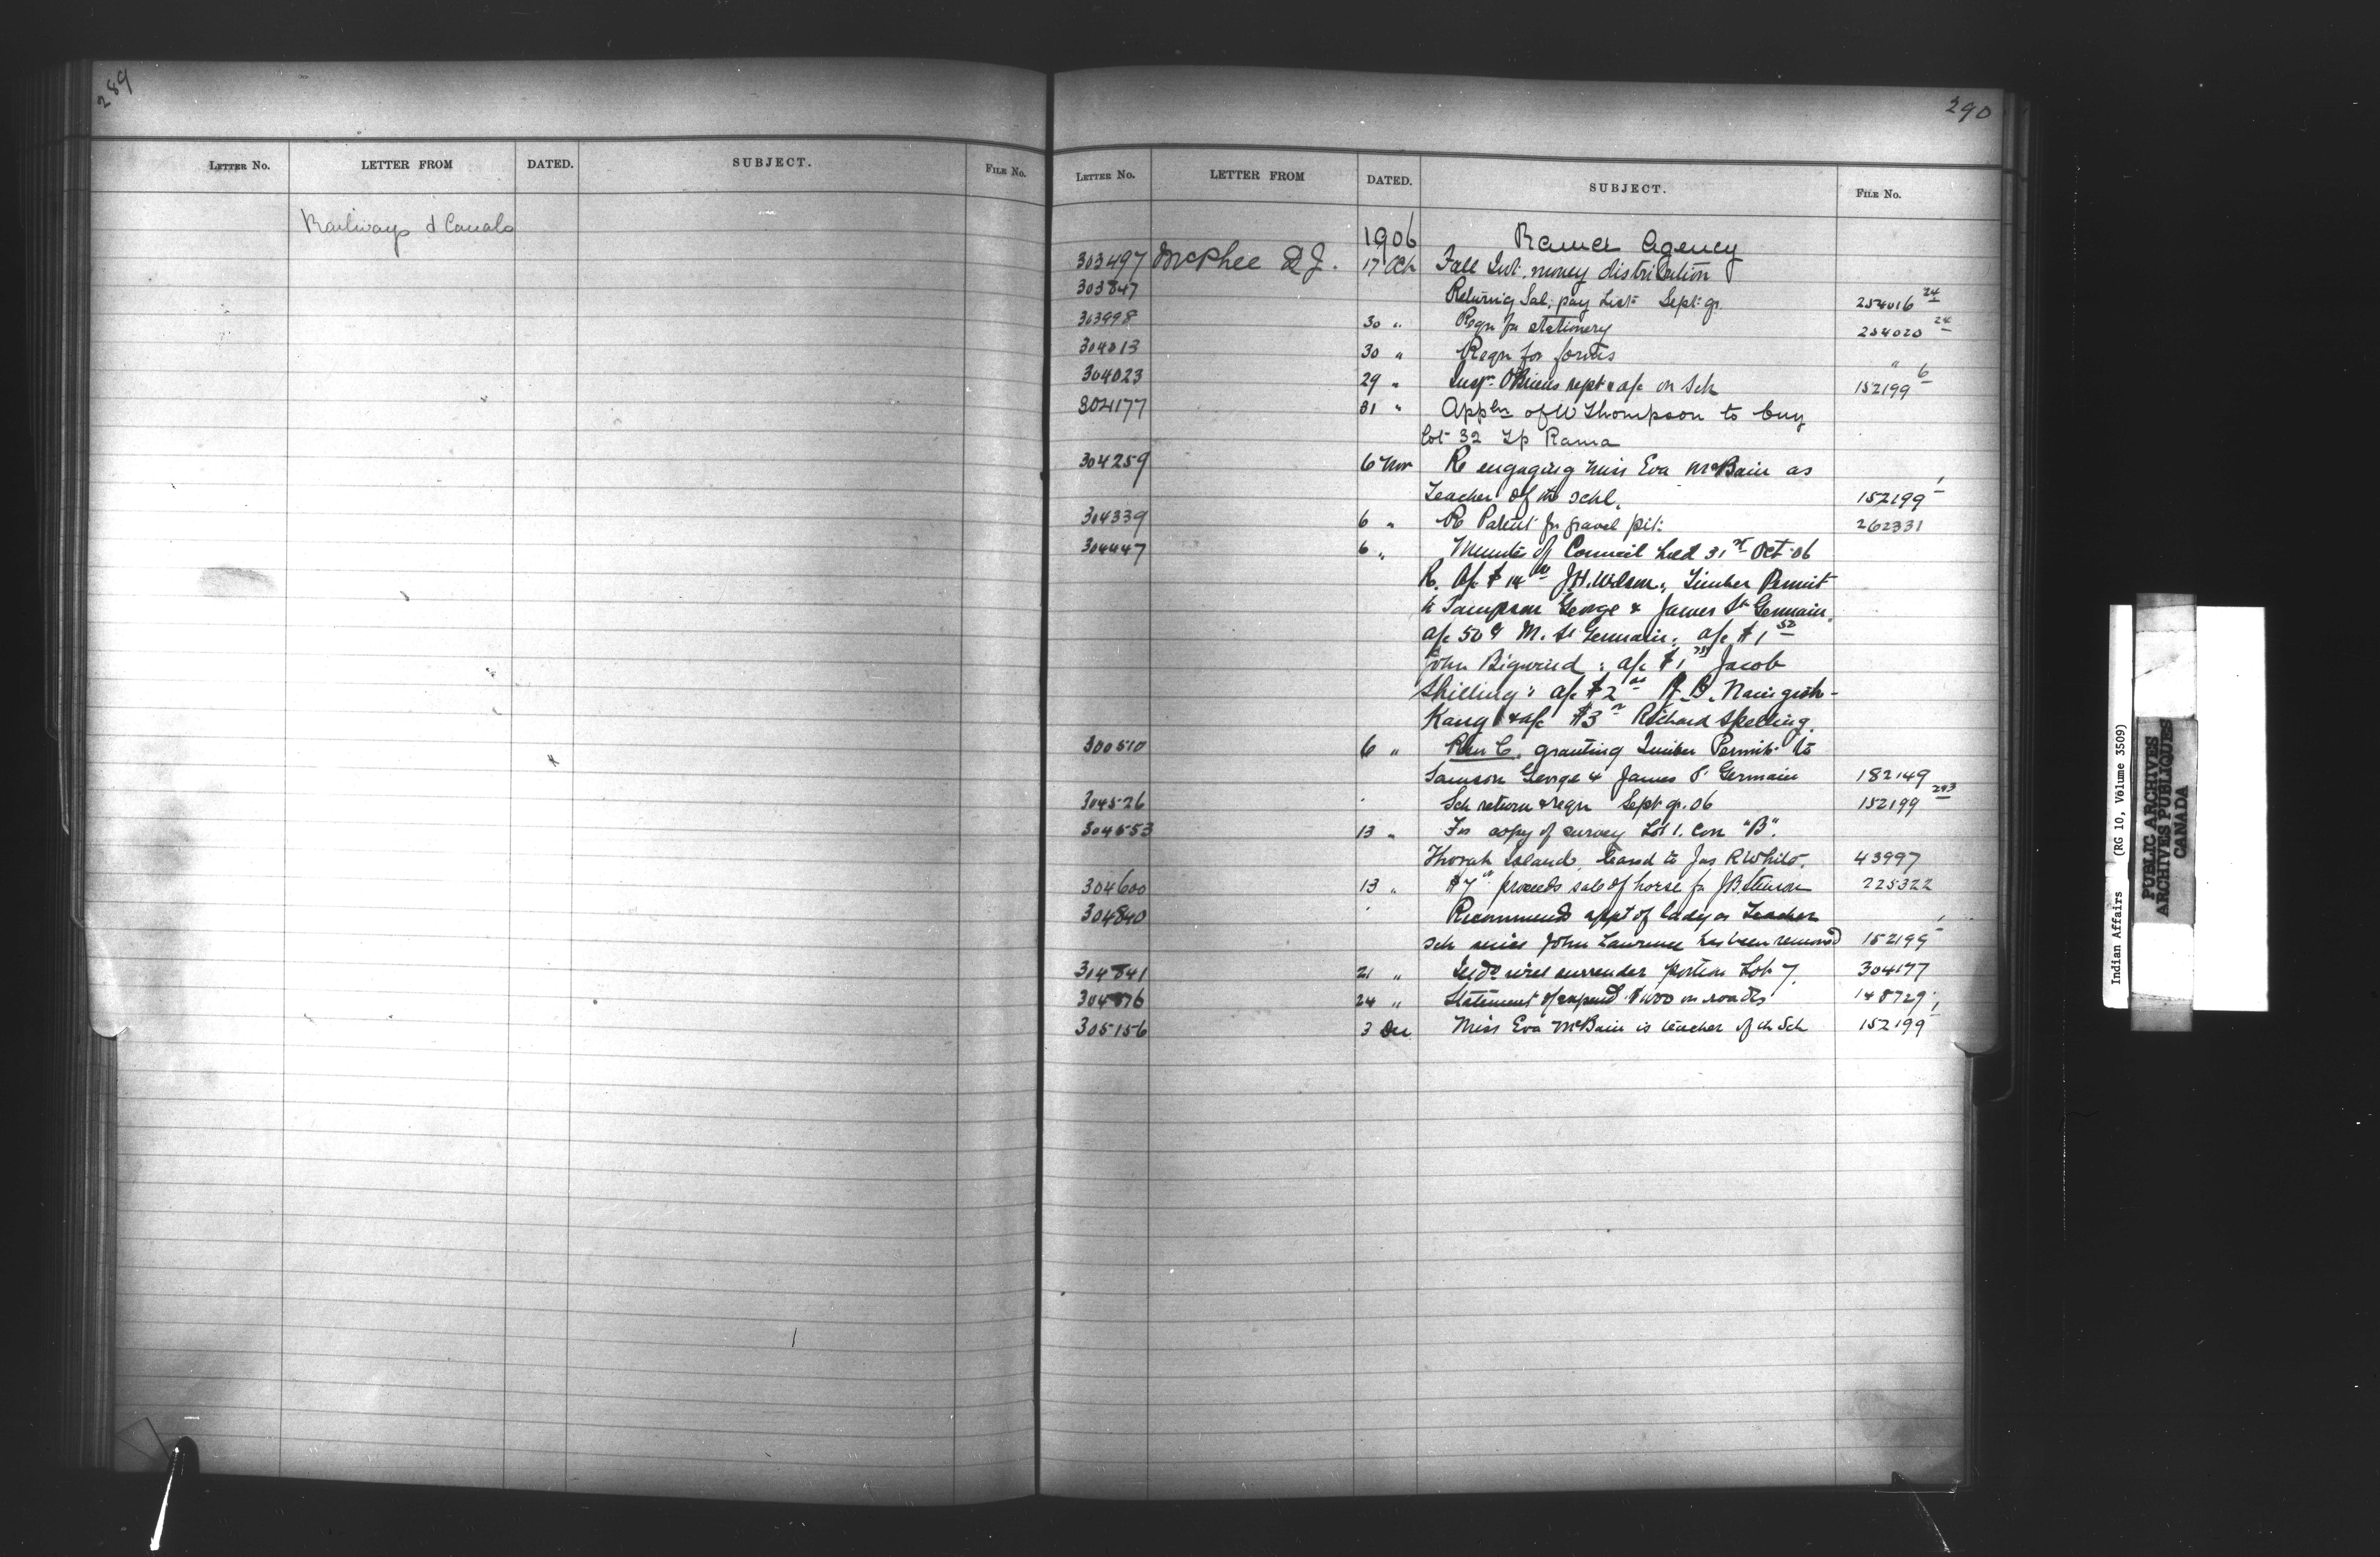 289
LETTER NO. LETTER FROM DATED. SUBJECT. FILE NO.
Railways & Canals
290
LETTER NO. LETTER FROM DATED. SUBJECT. FILE NO.
1906 Rama Agency
303497 McPhee D J. 17 Oct Fall Int. money distribution
303847 Returning Sal. pay List Sept qr. 254016 24
303998 30 " Reqn for stationery 254020 24
304013 30 " Reqn for forms "
304023 29 " rept & a/c on Sch 152199 6
304177 31 " Appln of W Thompson to buy
Lot 32 Tp Rama
304259 6 Nov Re engaging Miss Eva McBain as
Teacher of the schl. 152199 1
304339 6 " Re Patent for gravel pit. 262331
304447 6 " Minutes of Council held 31st Oct 06
Re. a/c $14 J.H. Wilson, Timber Permit
to Sampson George & James St Germain,
a/c 50¢ M. St Germain; a/c $1 50
John Bigwind; a/c $1 Jacob
Shilling; a/c $2 R. B. Naingish-
Kang & a/c $3 Richard Skelling.
300510 6 " granting Timber Permit to
Samson George & James St Germain 182149
304526 Sch return & reqn Sept qr. 06 152199 243
304553 13 " For copy of survey Lot 1. Con "B".
Thorah Island, leased to Jas R White. 43997
304600 13 " $7 proceeds sale of horse fr J B Stinson 225322
304840 Recommends appt of lady as Teacher
Sch since John Lawrence has been removed 152199 1
304841 21 " surrender portion Lot 7. 304177
304876 24 " Statement of expend $1000 on roads 148729
305156 3 Dec Miss Eva McBain is teacher of the Sch 152199 1
Indian Affairs (RG 10, Volume 3509)
PUBLIC ARCHIVES
ARCHIVES PUBLIQUES
CANADA